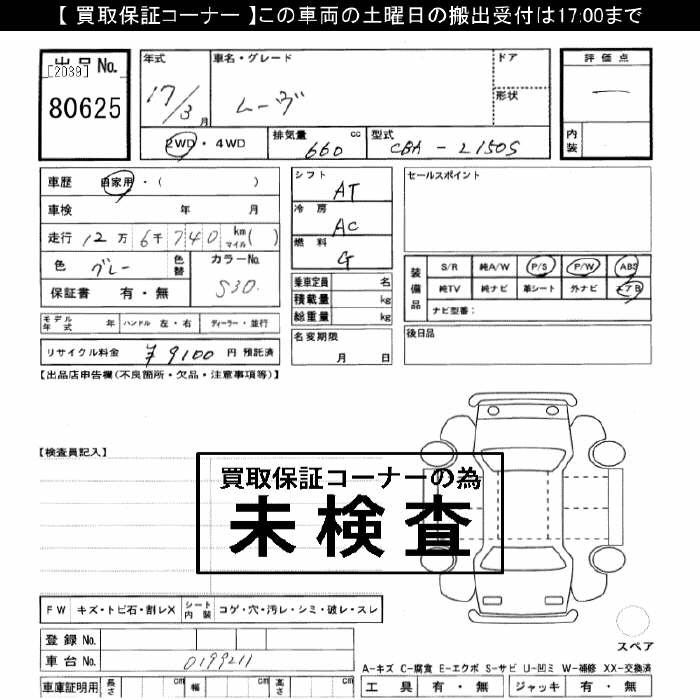 【 買取保証コーナー 】この車両の土曜日の搬出受付は17:00まで
出品 No. [2039] 80625
年式 17/3 月 車名・グレード ムーヴ ドア 形状
評価点 — 内装
2WD・4WD 排気量 660 cc 型式 CBA - L150S
車歴 自家用・( )
車検 年 月
走行 12 万 6 千 740 km マイル ( )
色 グレー 色替 カラーNo. S30.
保証書 有・無
シフト AT
冷房 AC
燃料 G
乗車定員 名
積載量 kg
総重量 kg
セールスポイント
装備品 S/R 純A/W P/S P/W ABS
純TV 純ナビ 革シート 外ナビ エアB
ナビ型番:
モデル年式 年 ハンドル 左・右 ディーラー・並行
名変期限 月 日
後日品
リサイクル料金 ¥9100 円 預託済
【出品店申告欄(不良箇所・欠品・注意事項等)】
【検査員記入】
買取保証コーナーの為
未検査
FW キズ・トビ石・割レX シート内装 コゲ・穴・汚レ・シミ・破レ・スレ
登録 No.
車台 No. 0199211
スペア
A-キズ C-腐食 E-エクボ S-サビ U-凹ミ W-補修 XX-交換済
車庫証明用 長さ cm 幅 cm 高さ cm 工具 有・無 ジャッキ 有・無